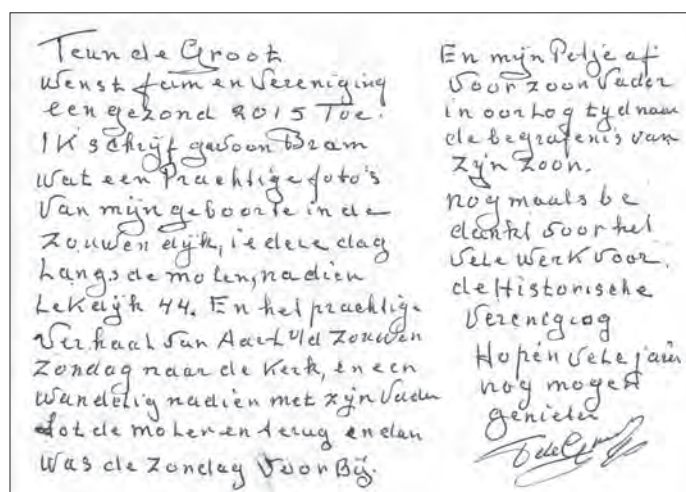 Teun de Groot
wenst fam en Vereniging
een gezond 2015 Toe.
IK schrijf gewoon Bram
wat een Prachtige foto's
van mijn geboorte in de
Zouwen dijk, iedere dag
Langs de molen, nadien
Lekdijk 44. En het prachtige
Verhaal van Aart v/d Zouwen
Zondag naar de Kerk, en een
wandelig nadien met zijn Vader
tot de molen en terug en dan
was de Zondag VoorBij.
En mijn Petje af
voor zoon Vader
in oorLog tyd naar
de begrafenis van
zijn zoon.
nog maals be
dankt voor het
vele werk voor
de Historische
Vereniging
Hopen vele jaren
nog mogen
genieten